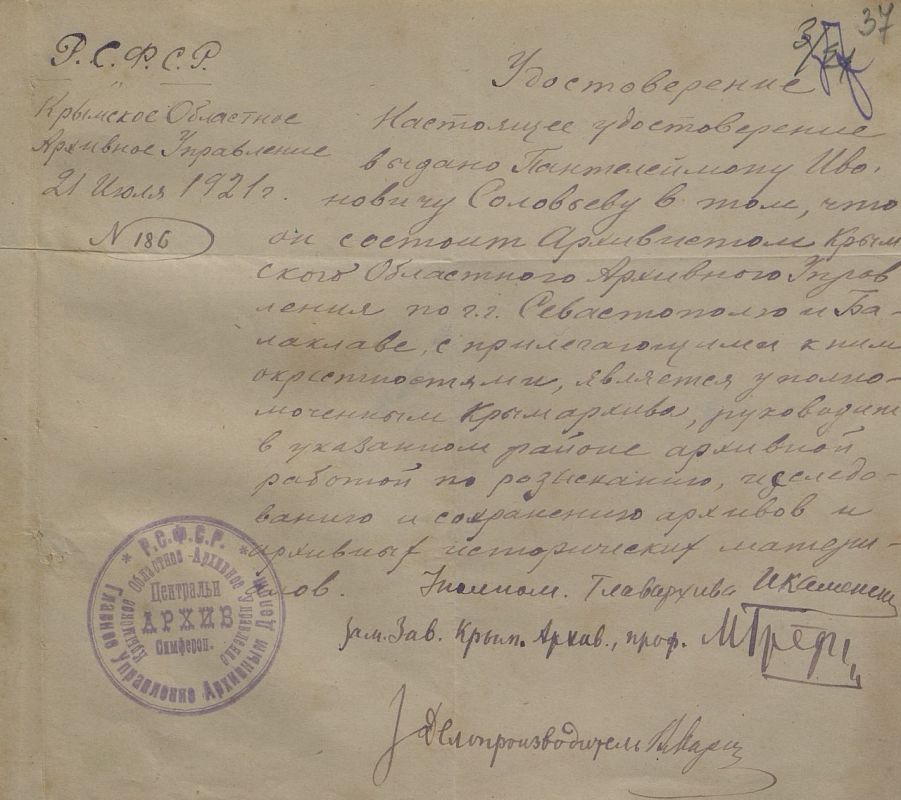 37
Р.С.Ф.С.Р.
Крымское Областное
Архивное Управление
21 Июля 1921 г.
N 186
Удостоверение
Настоящее удостоверение
выдано Пантелеймону Ива-
новичу Соловьеву в том, что
он состоит Архивистом Крым
ского Областного Архивного Управ
ления по г.г. Севастополю и Ба-
лаклаве, с прилегающими к ним
окрестностями, является уполно-
моченным Крымархива, руководит
в указанном районе архивной
работой по розысканию, исследо-
ванию и сохранению архивов и
архивных исторических матери-
алов.
Уполном. Главархива
зам. Зав. Крым. Архив., проф.
Делопроизводитель
Р.С.Ф.С.Р.
Главное Управление Архивным Делом
Крымское Областное Архивное Управление
Центральн
АРХИВ
Симферон.